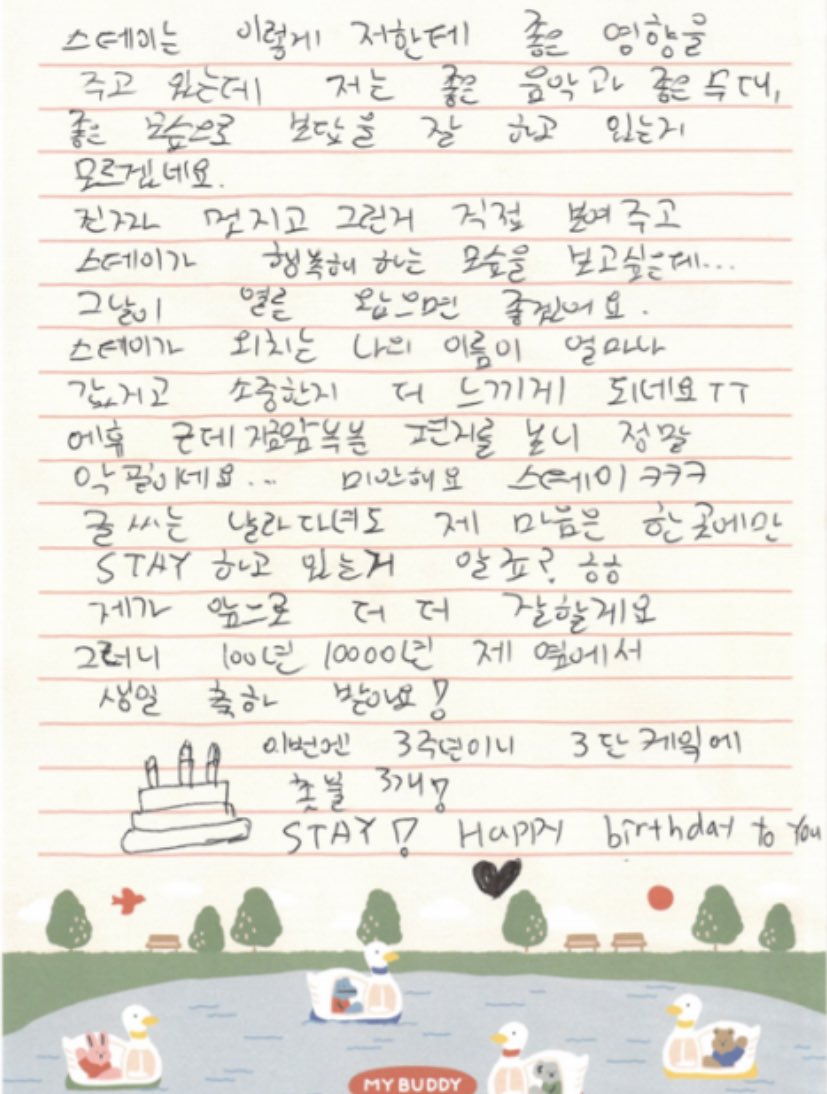 스테이는 이렇게 저한테 좋은 영향을
주고 있는데 저는 좋은 음악과 좋은 무대,
좋은 모습으로 보답을 잘 하고 있는지
모르겠네요.
진짜 멋지고 그런거 직접 보여주고
스테이가 행복해 하는 모습을 보고싶은데...
그날이 얼른 왔으면 좋겠어요.
스테이가 외치는 나의 이름이 얼마나
값지고 소중한지 더 느끼게 되네요ㅜㅜ
에휴 근데 지금 앞부분 편지를 보니 정말
악필이네요... 미안해요 스테이 ㅋㅋㅋ
글씨는 날라다녀도 제 마음은 한 곳에만
STAY 하고 있는거 알죠? ㅎㅎ
제가 앞으로 더 더 잘할게요
그러니 100년 10000년 제 옆에서
생일 축하 받아요!
이번엔 3주년이니 3단 케잌에
촛불 3개!
STAY! Happy birthday to you
MY BUDDY